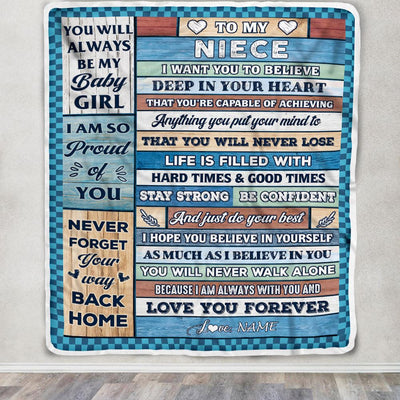 YOU WILL
ALWAYS
BE MY
Baby
GIRL
I AM SO
Proud
of
YOU
NEVER
FORGET
Your
way
BACK
HOME
TO MY
NIECE
I WANT YOU TO BELIEVE
DEEP IN YOUR HEART
THAT YOU'RE CAPABLE OF ACHIEVING
Anything you put your mind to
THAT YOU WILL NEVER LOSE
LIFE IS FILLED WITH
HARD TIMES & GOOD TIMES
STAY STRONG BE CONFIDENT
And just do your best
I HOPE YOU BELIEVE IN YOURSELF
AS MUCH AS I BELIEVE IN YOU
YOU WILL NEVER WALK ALONE
BECAUSE I AM ALWAYS WITH YOU AND
LOVE YOU FOREVER
Love, NAME